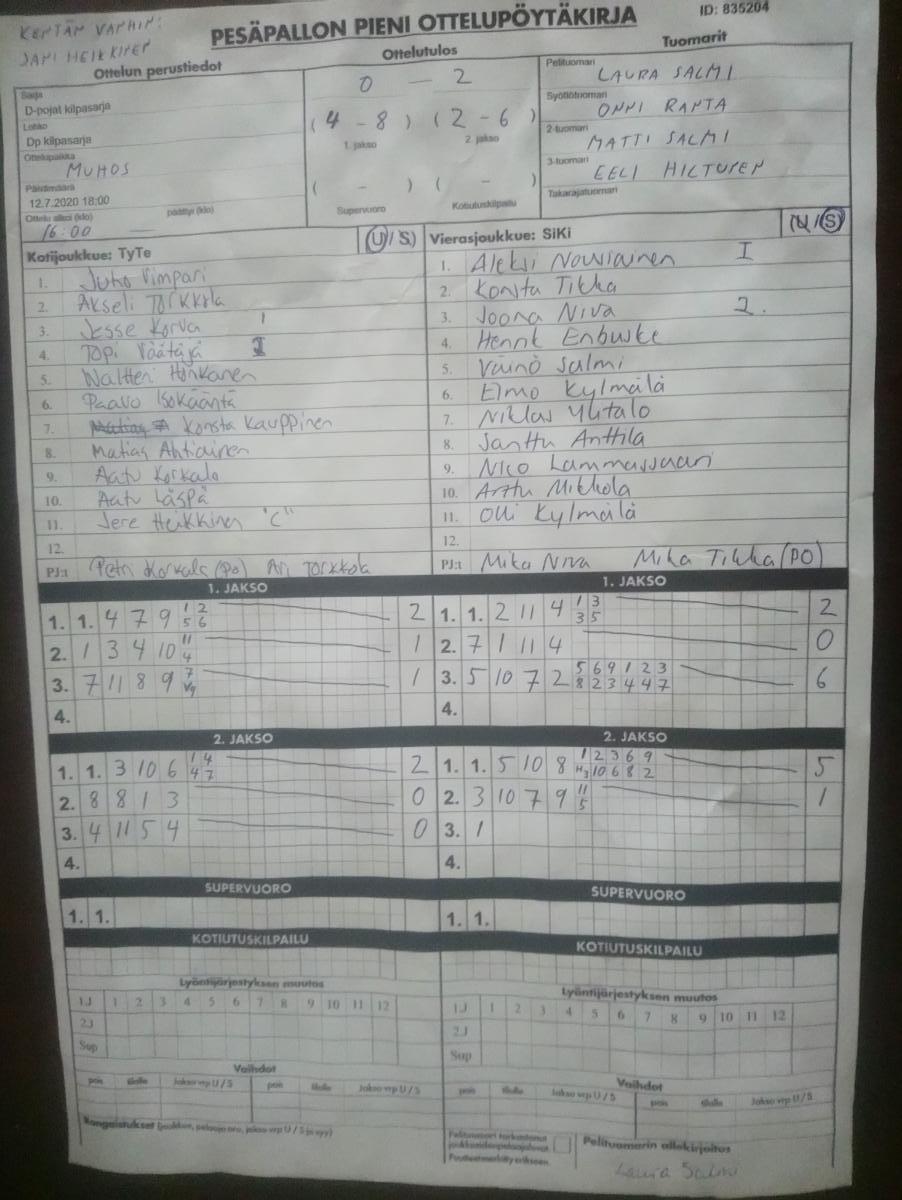 KENTÄN VANHIN:
JANI HEIKKINEN
PESÄPALLON PIENI OTTELUPÖYTÄKIRJA
ID: 835204
Ottelun perustiedot
Ottelutulos
Tuomarit
Sarja
D-pojat kilpasarja
Lohko
Dp kilpasarja
Ottelupaikka
MUHOS
Päivämäärä
12.7.2020 18:00
Ottelu alkoi (klo) päättyi (klo)
16:00
0 - 2
(4 - 8) (2 - 6)
1. jakso 2. jakso
( - ) ( - )
Supervuoro Kotiutuskilpailu
Pelituomari
LAURA SALMI
Syöttötuomari
ONNI RANTA
2-tuomari
MATTI SALMI
3-tuomari
EELI HILTUNEN
Takarajatuomari
Kotijoukkue: TyTe (U/S)
1. Juho Vimpari
2. Akseli Torkkola
3. Jesse Korva 1
4. Topi Väätäjä
5. Waltteri Honkanen
6. Paavo Isokääntä
7. Konsta Kauppinen
8. Matias Ahtiainen
9. Aatu Korkalo
10. Aatu Läspä
11. Jere Heikkinen "C"
12.
PJ:t Petri Korkalo (po) Ari Torkkola
Vierasjoukkue: SiKi (U/S)
1. Aleksi Nousiainen I
2. Konsta Tikka
3. Joona Niva 2.
4. Henrik Enbuske
5. Väinö Salmi
6. Elmo Kylmälä
7. Niklas Ylitalo
8. Santtu Anttila
9. Nico Lammassaari
10. Arttu Mikkola
11. Olli Kylmälä
12.
PJ:t Mika Niva Mika Tikka (PO)
1. JAKSO
1. 1. 4 7 9 1 2 2
5 6
2. 1 3 4 10 11 1
4
3. 7 11 8 9 7 1
V9
4.
1. JAKSO
1. 1. 2 11 4 1 3 2
3 5
2. 7 1 11 4 0
3. 5 10 7 2 5 6 9 1 2 3 6
8 2 3 4 4 7
4.
2. JAKSO
1. 1. 3 10 6 1 4 2
4 7
2. 8 8 1 3 0
3. 4 11 5 4 0
4.
2. JAKSO
1. 1. 5 10 8 1 2 3 6 9 5
H3 10 6 8 2
2. 3 10 7 9 11 1
5
3. 1
4.
SUPERVUORO
1. 1.
SUPERVUORO
1. 1.
KOTIUTUSKILPAILU
KOTIUTUSKILPAILU
Lyöntijärjestyksen muutos
1J 1 2 3 4 5 6 7 8 9 10 11 12
2J
Sup
Lyöntijärjestyksen muutos
1J 1 2 3 4 5 6 7 8 9 10 11 12
2J
Sup
Vaihdot
pois tilalle Jakso vrp U / S pois tilalle Jakso vrp U / S
Vaihdot
pois tilalle Jakso vrp U / S pois tilalle Jakso vrp U / S
Rangaistukset (joukkue, pelaaja nro, jakso vrp U / S ja syy)
Pelituomari tarkastanut
joukkueidenpelaajaluvat
Puutteetmerkitty erikseen
Pelituomarin allekirjoitus
Laura Salmi